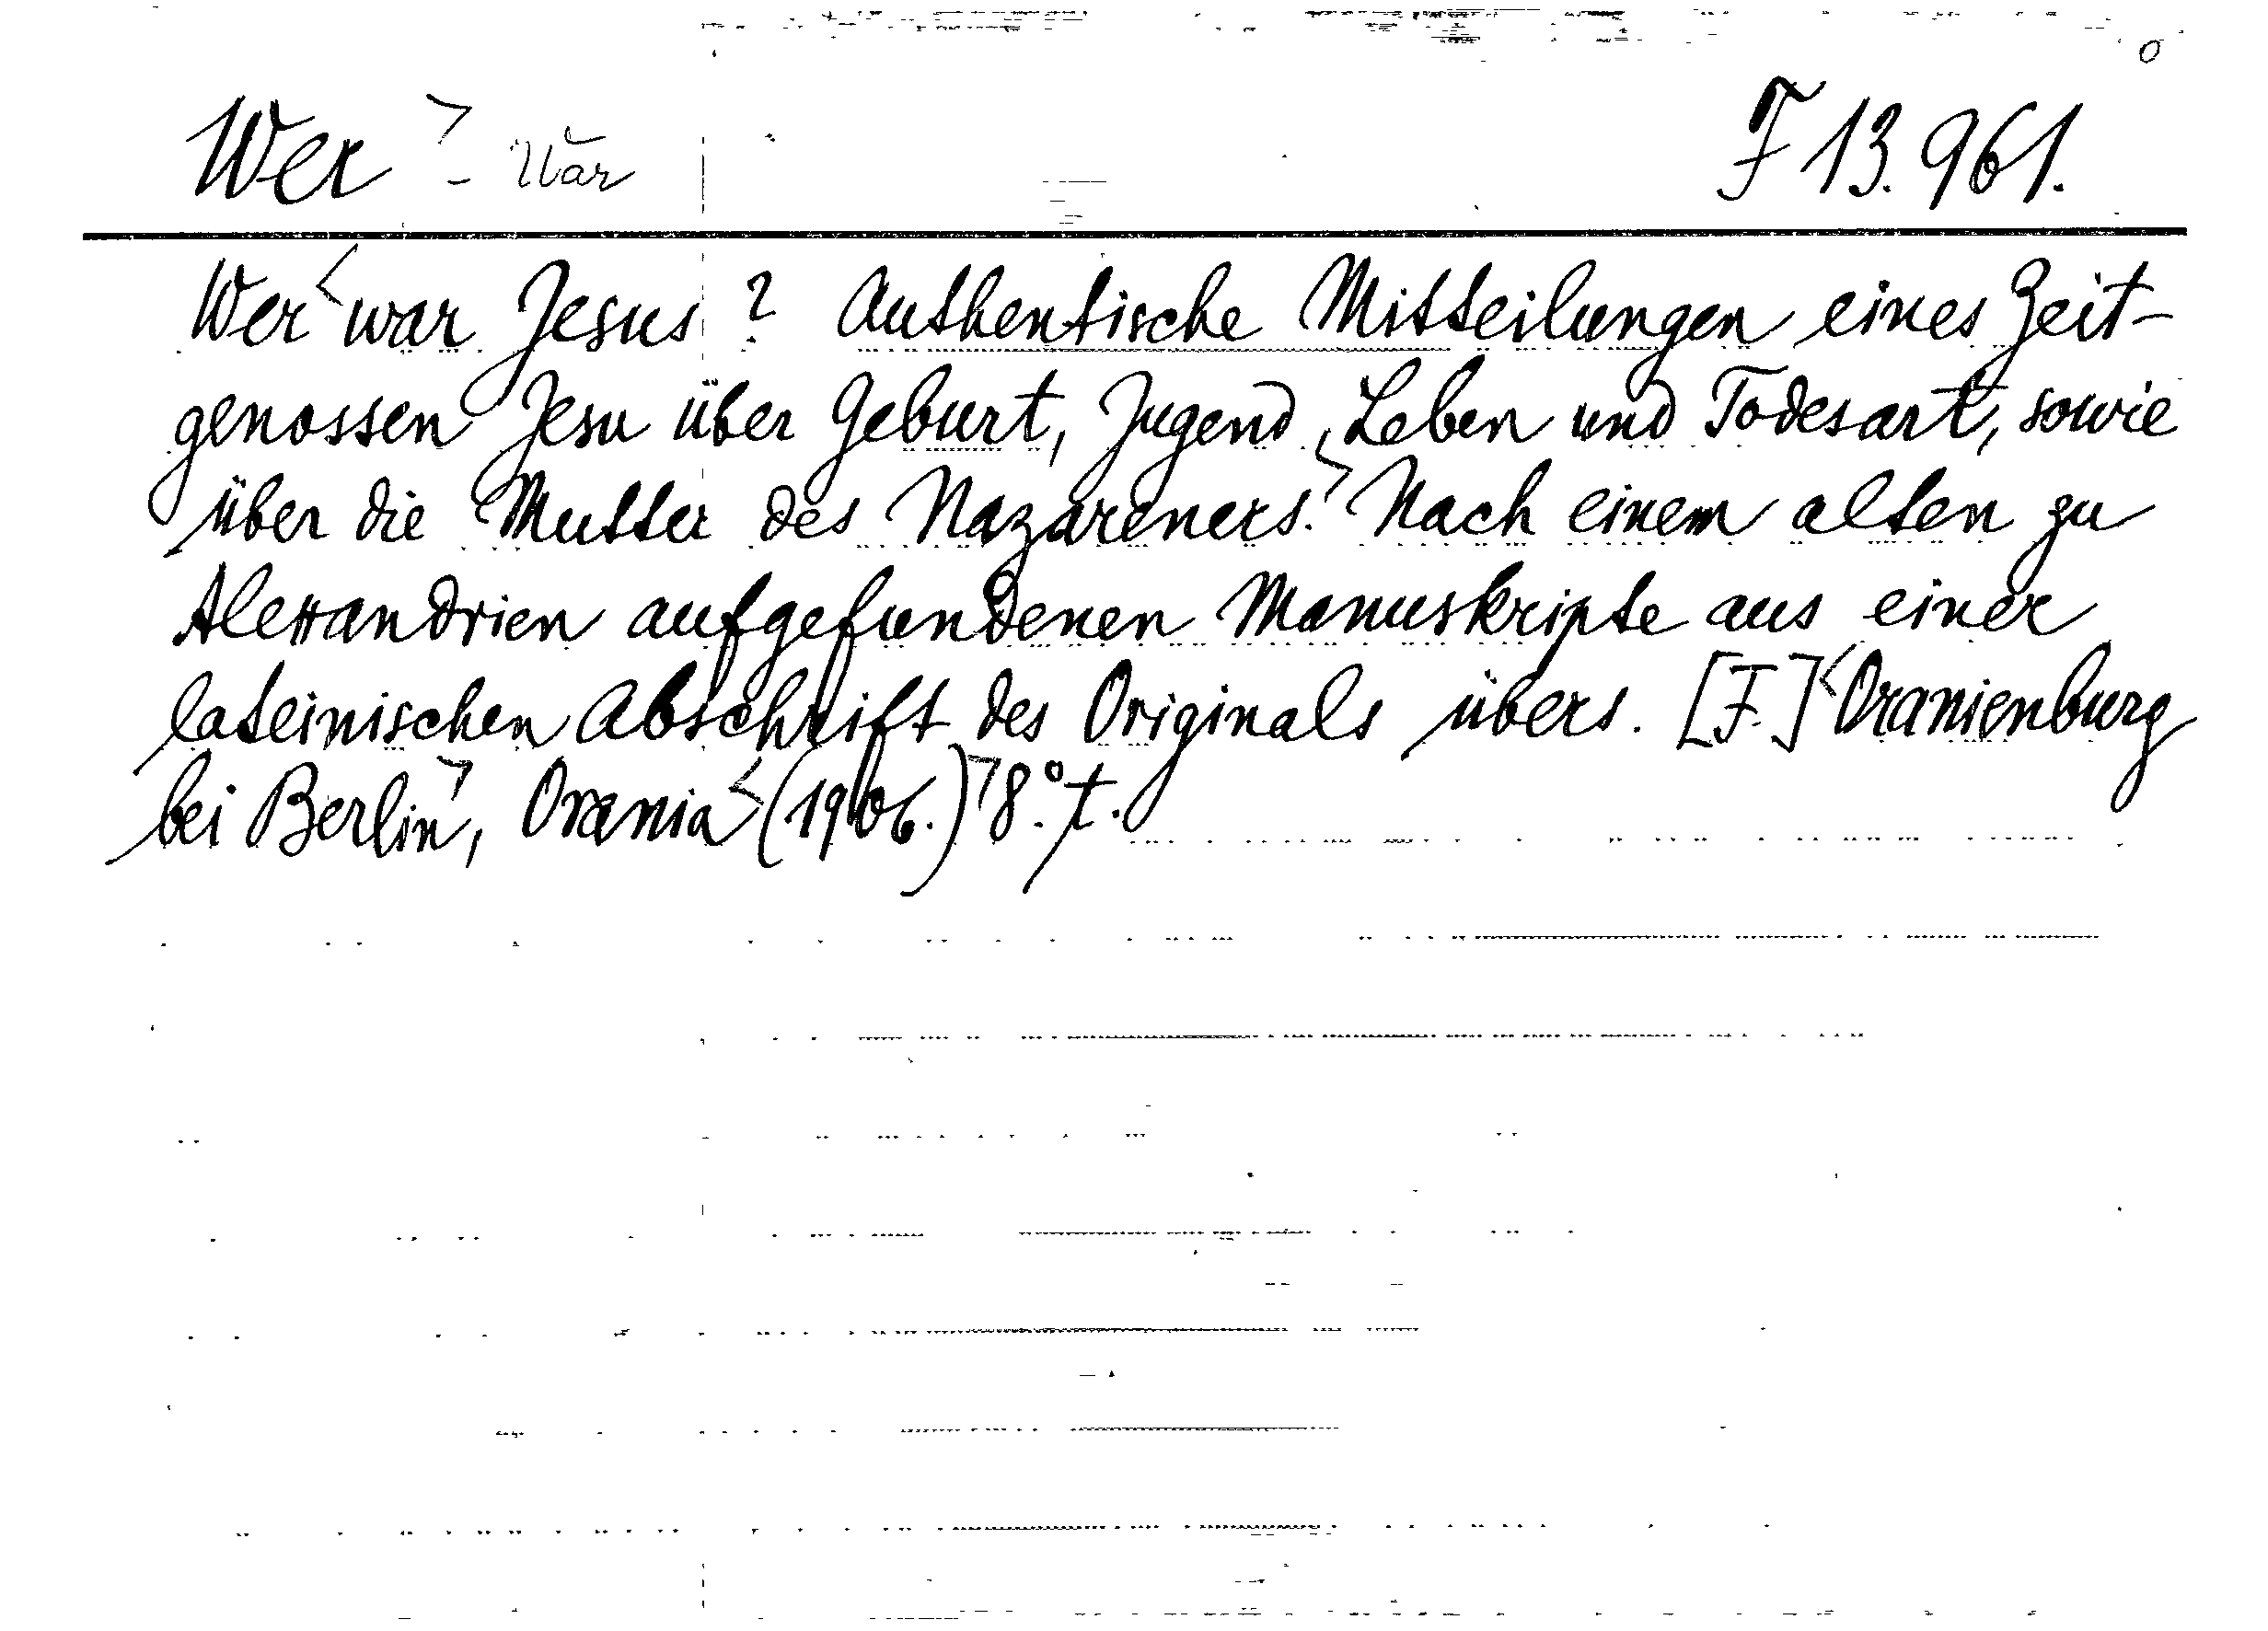 Wer - War F 13.961.
Wer war Jesus? Authentische Mitteilungen eines Zeit-
genossen Jesu über Geburt, Jugend, Leben und Todesart, sowie
über die Mutter des Nazareners. Nach einem alten zu
Alexandrien aufgefundenen Manuskripte aus einer
lateinischen Abschrift des Originals übers. [F.] Oranienburg
bei Berlin, Orania (1906.) 8.° t.